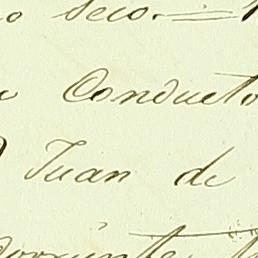 o Seco. =
Conducto
Juan de